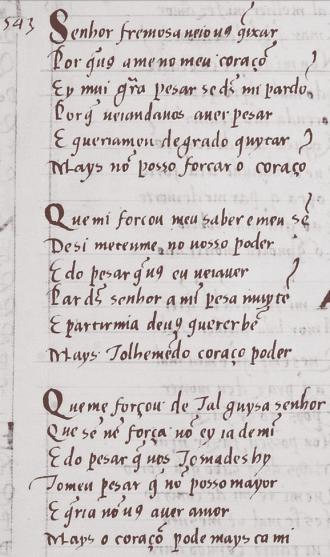 543
Senhor fremosa veio uꝯ q̃ixar
Por q̃uꝯ ame no meu coraço
Ey mui gr̃a pesar se ds̃ mi pardo
Porq̃ veiandavos aver pesar
E queriamen de grado quytar
Mays nõ posso forcar o coraço
Que mi forcou meu saber e meu sẽ
Desi meteume no vosso poder
E do pesar q̃ uꝯ eu veiaver
Par ds̃ senhor a mĩ pesa muytẽ
E partirmia deuꝯ querer bẽ
Mays tolhemẽdo coraço poder
Que me forçou de tal guysa senhor
Que sẽ nẽ força nõ ey ia de mi
E do pesar q̃ vos tomades hy
Tomeu pesar q̃ nõ posso mayor
E q̃ria nõ uꝯ aver amor
Mays o coraço pode mays ca mi